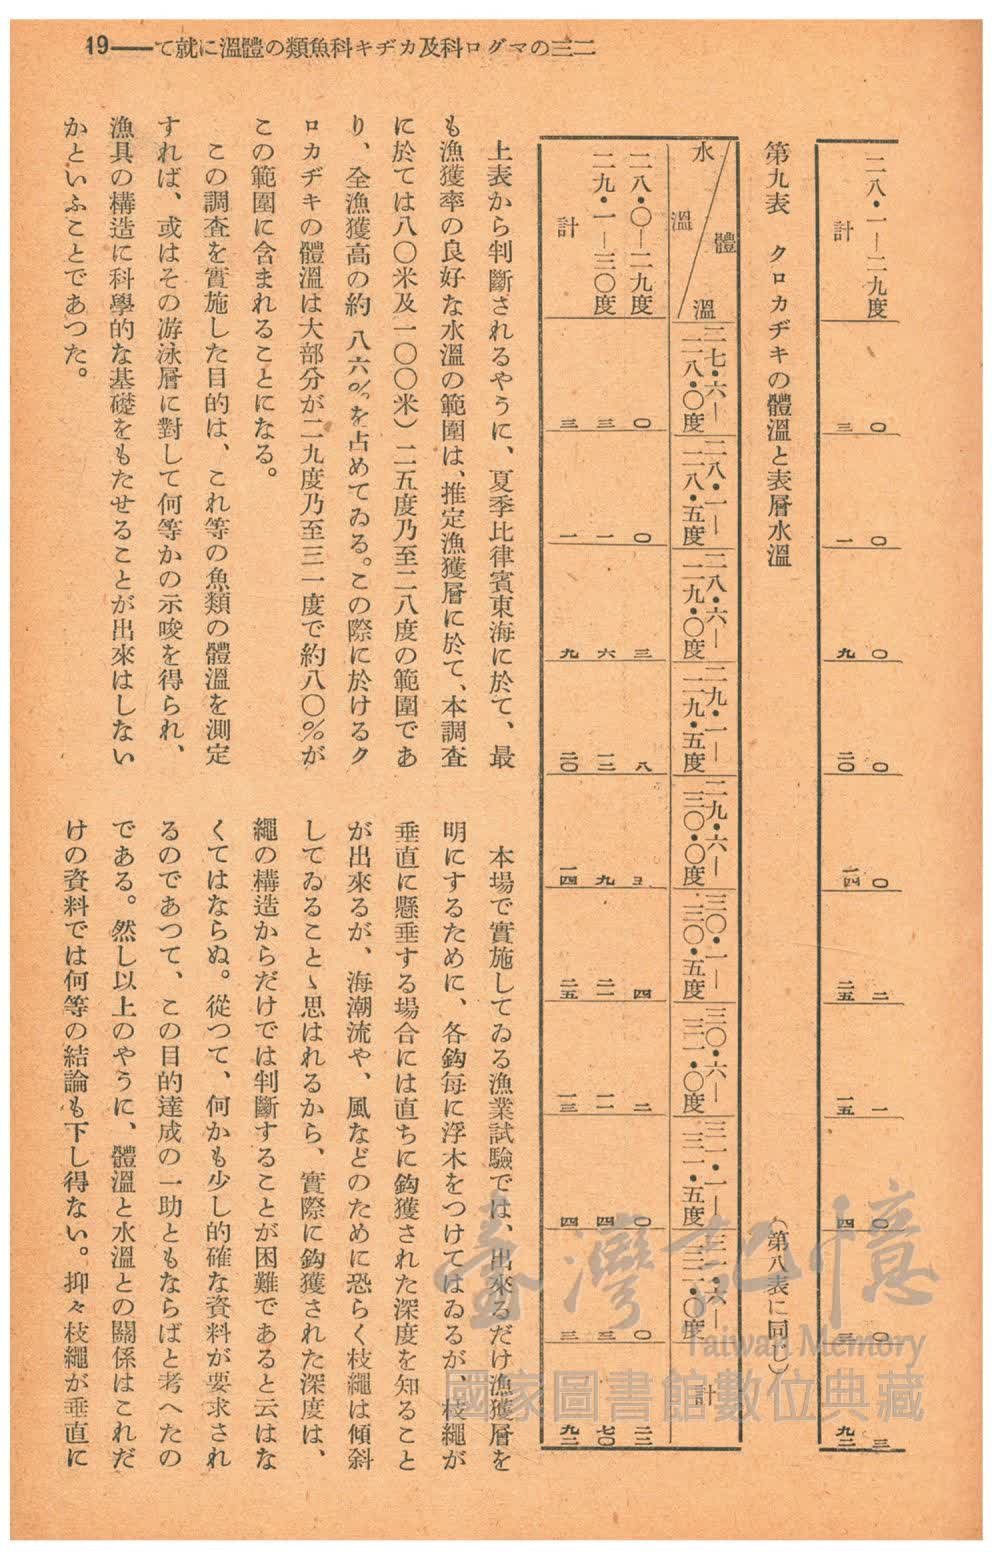 二三のマグロ科及カヂキ科魚類の體溫に就て——19
二八・一—二九度 〇 〇 〇 〇 〇 二 一 〇 〇 三
計 三 一 九 二〇 一四 二五 一五 四 三 九二
第九表 クロカヂキの體溫と表層水溫 (第八表に同じ)
水溫 體溫 二七・六—二八・〇度 二八・一—二八・五度 二八・六—二九・〇度 二九・一—二九・五度 二九・六—三〇・〇度 三〇・一—三〇・五度 三〇・六—三一・〇度 三一・一—三一・五度 三一・六—三二・〇度 計
二八・〇—二九度 〇 〇 三 八 五 四 二 〇 〇 二二
二九・一—三〇度 三 一 六 一二 九 二一 一一 四 三 七〇
計 三 一 九 二〇 一四 二五 一三 四 三 九二
上表から判斷されるやうに、夏季比律賓東海に於て、最
も漁獲率の良好な水溫の範圍は、推定漁獲層に於て、本調査
に於ては八〇米及一〇〇米)二五度乃至二八度の範圍であ
り、全漁獲高の約八六%を占めてゐる。この際に於けるク
ロカヂキの體溫は大部分が二九度乃至三一度で約八〇%が
この範圍に含まれることになる。
この調査を實施した目的は、これ等の魚類の體溫を測定
すれば、或はその游泳層に對して何等かの示唆を得られ、
漁具の構造に科學的な基礎をもたせることが出來はしない
かといふことであつた。
本場で實施してゐる漁業試驗では、出來るだけ漁獲層を
明にするために、各鈎每に浮木をつけてはゐるが、枝繩が
垂直に懸垂する場合には直ちに鈎獲された深度を知ること
が出來るが、海潮流や、風などのために恐らく枝繩は傾斜
してゐることゝ思はれるから、實際に鈎獲された深度は、
繩の構造からだけでは判斷することが困難であると云はな
くてはならぬ。從つて、何かも少し的確な資料が要求され
るのであつて、この目的達成の一助ともならばと考へたの
である。然し以上のやうに、體溫と水溫との關係はこれだ
けの資料では何等の結論も下し得ない。抑々枝繩が垂直に
臺灣記憶
Taiwan Memory
國家圖書館數位典藏